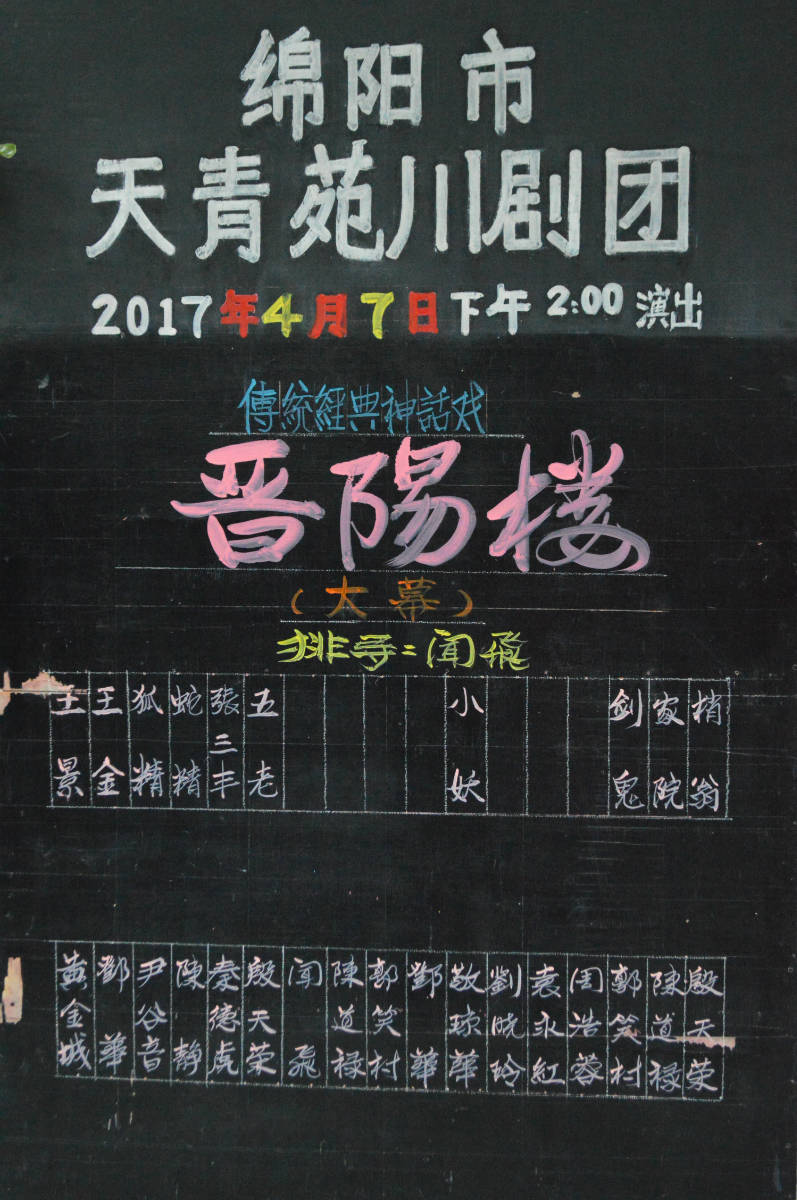 绵阳市
天青苑川剧团
2017年4月7日下午2:00演出
傳統經典神話戏
晋陽楼
(大幕)
排导:闻飛
王景
王金
狐精
蛇精
張三丰
五老
小妖
剑鬼
家院
梢翁
黄金城
鄧華
尹谷音
陳静
秦德虎
殷天荣
闻飛
陳道禄
郭笑村
鄧華
敬琼華
劉晓玲
袁永紅
周浩蓉
郭笑村
陳道禄
殷天荣